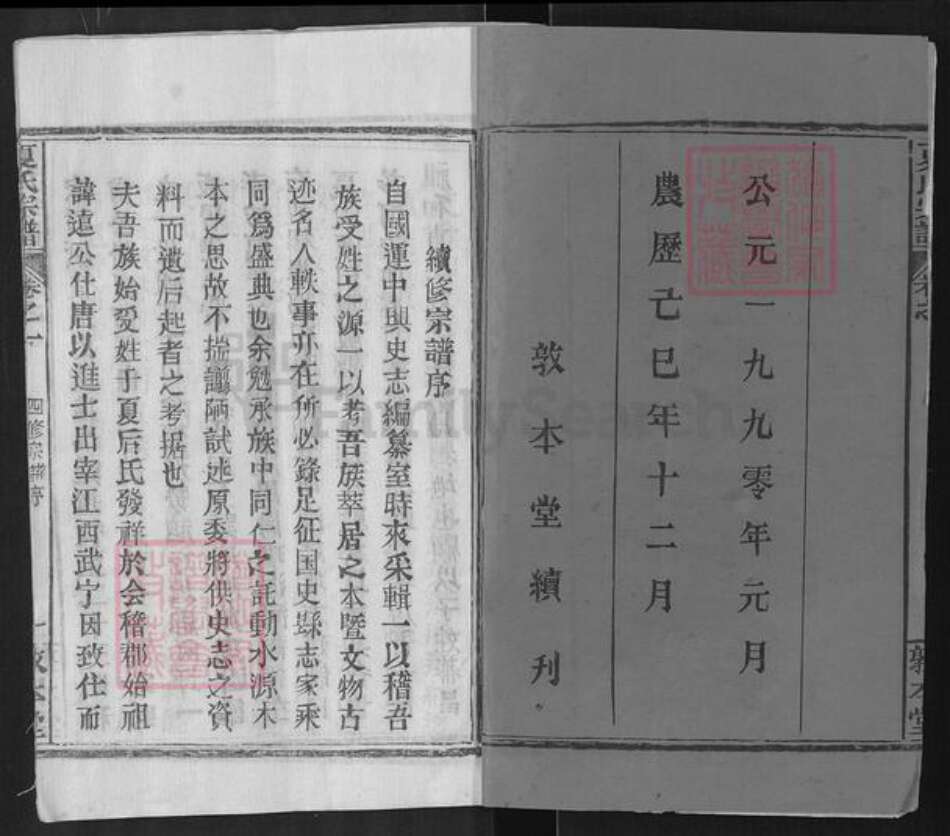 夏氏宗譜
公元一九九零年元月
農歷己巳年十二月
敦本堂續刊
續修宗譜序
自國運中興史志編纂室時來采輯一以稽吾
族受姓之源一以考吾族萃居之本暨文物古
迹名人軼事亦在所必錄足征国史縣志家乘
同爲盛典也余勉承族中同仁之託動水源木
本之思故不揣譾陋試述原委將供史志之資
料而遺后起者之考据也
夫吾族始受姓于夏后氏發祥於会稽郡始祖
諱遠公仕唐以進士出宰江西武宁因致仕而
夏氏宗譜
卷之一
四修宗譜序
一
敦本堂
FamilySearch